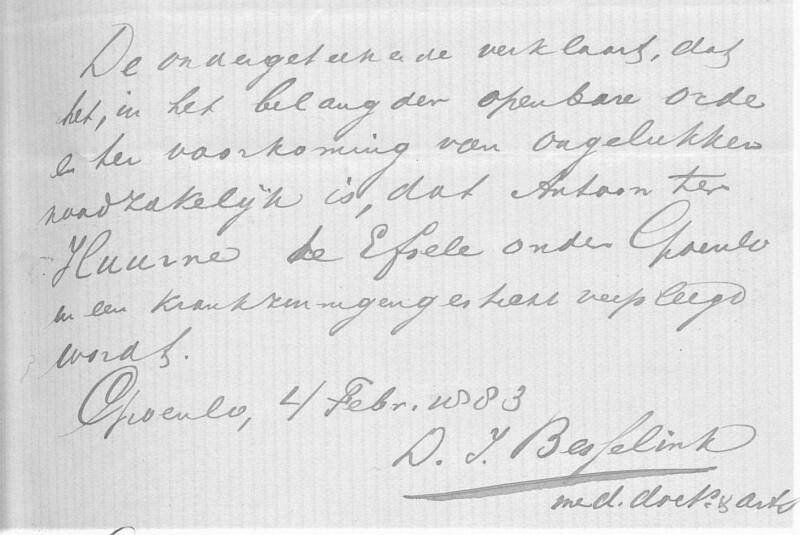 De ondergeteekende verklaart, dat
het, in het belang der openbare orde
en ter voorkoming van ongelukken
noodzakelijk is, dat Antoon ter
Huurne te Efsele onder Groenlo
in een krankzinnigengesticht verpleegd
wordt.
Groenlo, 4 Febr. 1883
D. J. Besselink
med. doct. & arts